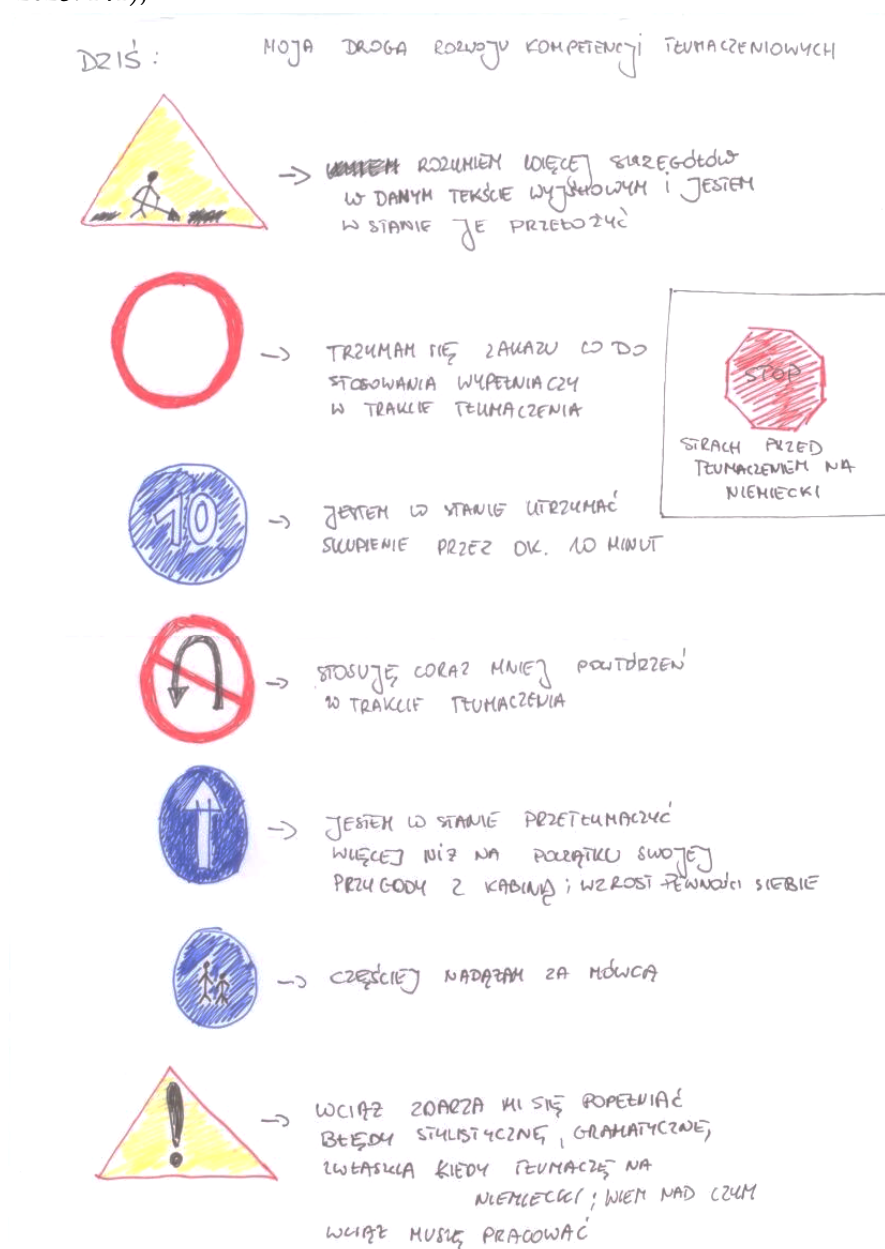 DZIŚ: MOJA DROGA ROZWOJU KOMPETENCJI TŁUMACZENIOWYCH
→ ROZUMIEM WIĘCEJ SZCZEGÓŁÓW
W DANYM TEKŚCIE WYJŚCIOWYM I JESTEM
W STANIE JE PRZEŁOŻYĆ
→ TRZYMAM SIĘ ZAKAZU CO DO
STOSOWANIA WYPEŁNIACZY
W TRAKCIE TŁUMACZENIA
STOP
STRACH PRZED
TŁUMACZENIEM NA
NIEMIECKI
10
→ JESTEM W STANIE UTRZYMAĆ
SKUPIENIE PRZEZ OK. 10 MINUT
→ STOSUJĘ CORAZ MNIEJ POWTÓRZEŃ
W TRAKCIE TŁUMACZENIA
→ JESTEM W STANIE PRZETŁUMACZYĆ
WIĘCEJ NIŻ NA POCZĄTKU SWOJEJ
PRZYGODY Z KABINĄ; WZROST PEWNOŚCI SIEBIE
→ CZĘŚCIEJ NADĄŻAM ZA MÓWCĄ
!
→ WCIĄŻ ZDARZA MI SIĘ POPEŁNIAĆ
BŁĘDY STYLISTYCZNĘ, GRAMATYCZNE,
ZWŁASZCZA KIEDY TŁUMACZĘ NA
NIEMIECKI; WIEM NAD CZYM
WCIĄŻ MUSZĘ PRACOWAĆ